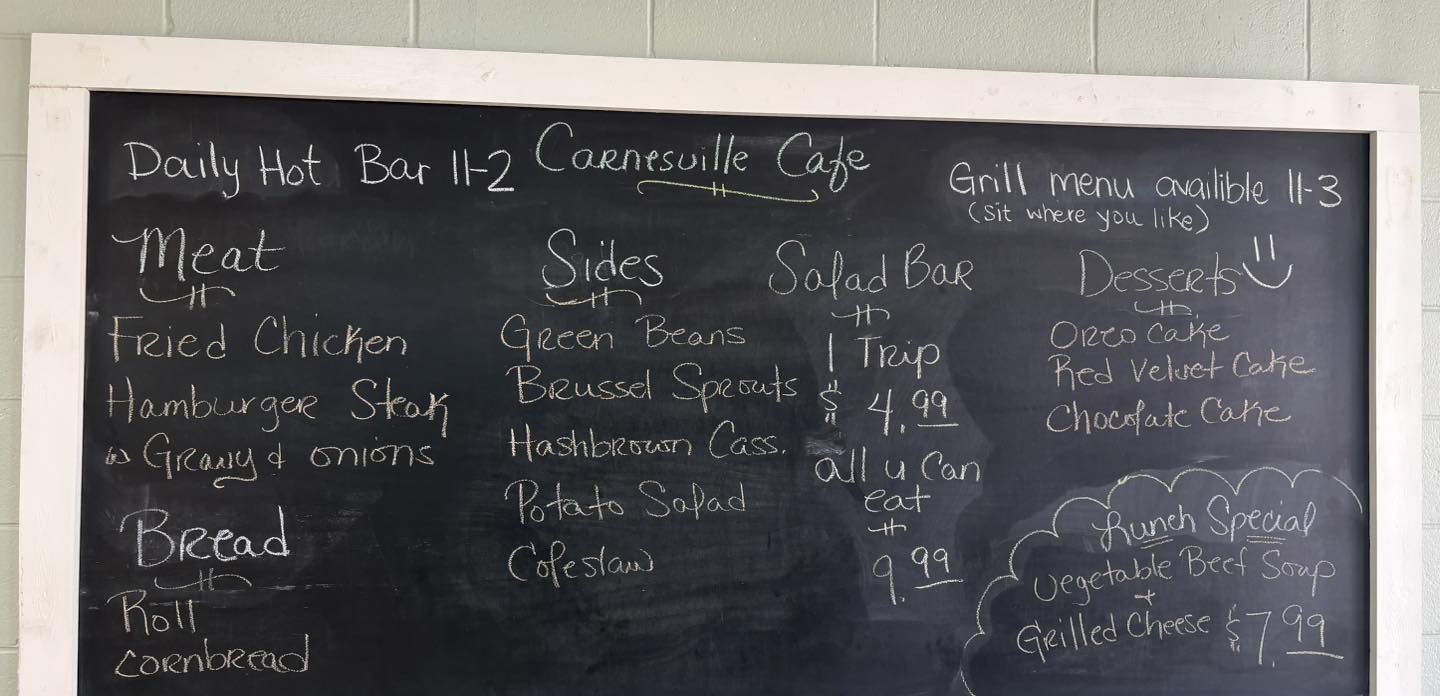 Daily Hot Bar 11-2
Carnesville Cafe
Grill menu availible 11-3
(sit where you like)
Meat
Fried Chicken
Hamburger Steak
w Gravy & onions
Bread
Roll
Cornbread
Sides
Green Beans
Brussel Sprouts
Hashbrown Cass.
Potato Salad
Coleslaw
Salad Bar
1 Trip
$4.99
all u can
eat
9.99
Desserts
Oreo Cake
Red Velvet Cake
Chocolate Cake
Lunch Special
Vegetable Beef Soup
+
Grilled Cheese $7.99